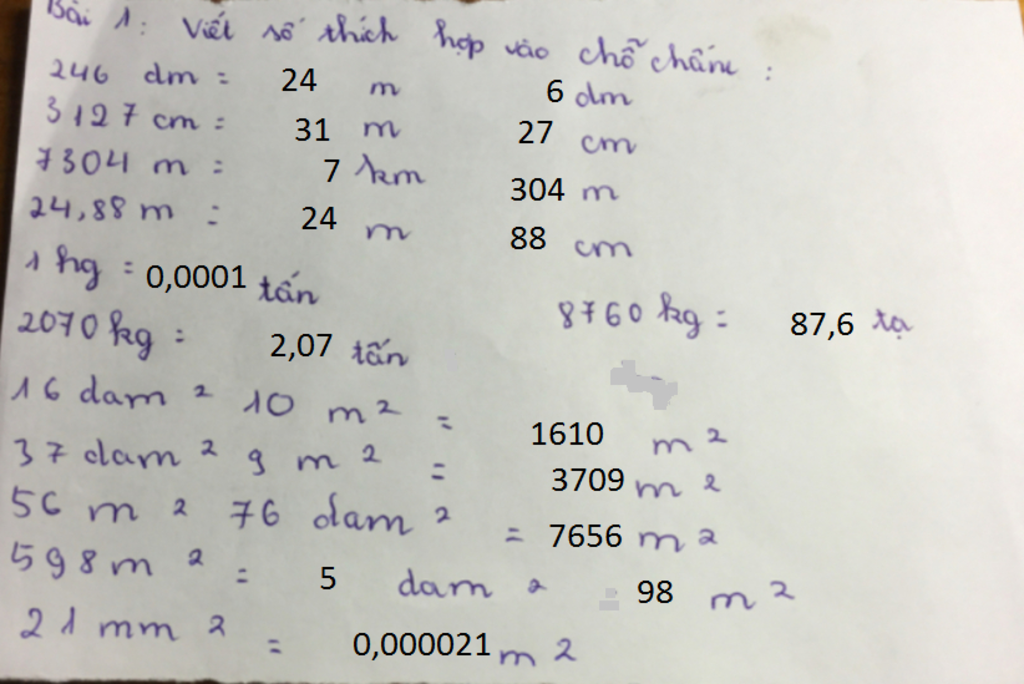 Bài 1: Viết số thích hợp vào chỗ chấm:
246 dm = 24 m 6 dm
3127 cm = 31 m 27 cm
7304 m = 7 km 304 m
24,88 m = 24 m 88 cm
1 hg = 0,0001 tấn
8760 kg = 87,6 tạ
2070 kg = 2,07 tấn
16 dam 2 10 m 2 = 1610 m 2
37 dam 2 9 m 2 = 3709 m 2
56 m 2 76 dam 2 = 7656 m 2
598 m 2 = 5 dam 2 98 m 2
21 mm 2 = 0,000021 m 2